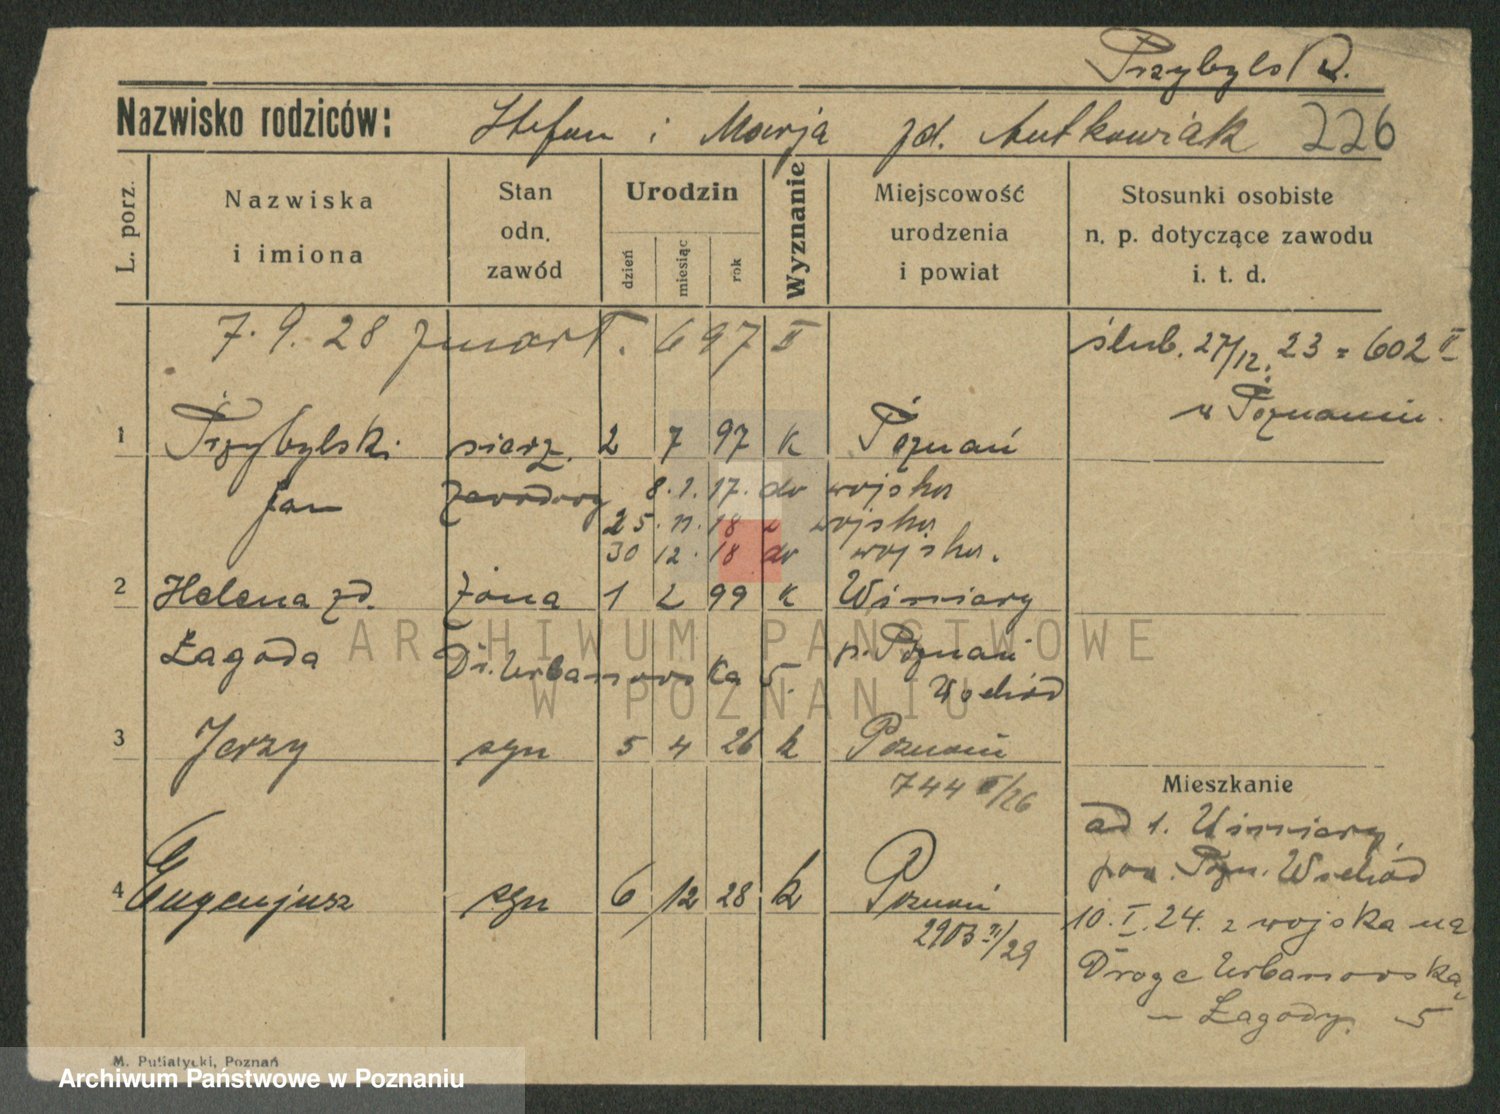 Przybyls
Nazwisko rodziców: Stefan i Marja zd. Antkowiak 226
L. porz.
Nazwiska i imiona
Stan odn. zawód
Urodzin
dzień miesiąc rok
Wyznanie
Miejscowość urodzenia i powiat
Stosunki osobiste n. p. dotyczące zawodu i. t. d.
7. 9. 28 zmarł. 697 II
ślub. 27/12. 23 = 602 II
w Poznaniu.
1 Przybylski sierż. 2 7 97 k Poznań
Jan zawodowy 8. 1. 17. do wojska
25. 11. 18 z wojska
30 12. 18 do wojska.
2 Helena zd. żona 1 2 99 k Winiary
Łagoda Dr. Urbanowska 5. p. Poznań
Wschód
3 Jerzy syn 5 4 26 k Poznań
744 /26
Mieszkanie
ad 1. Winiary
pow. Pozn. Wschód
4 Eugenjusz syn 6 12 28 k Poznań
2903 /29
10. I. 24. z wojska na
Drogę Urbanowską
- Łagody. 5
M. Putiatycki, Poznań
ARCHIWUM PAŃSTWOWE
W POZNANIU
Archiwum Państwowe w Poznaniu